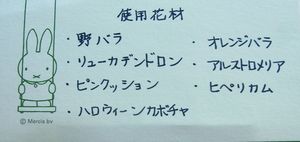 使用花材
・野バラ
・リューカデンドロン
・ピンクッション
・ハロウィーンカボチャ
・オレンジバラ
・アルストロメリア
・ヒペリカム
© Mercis bv